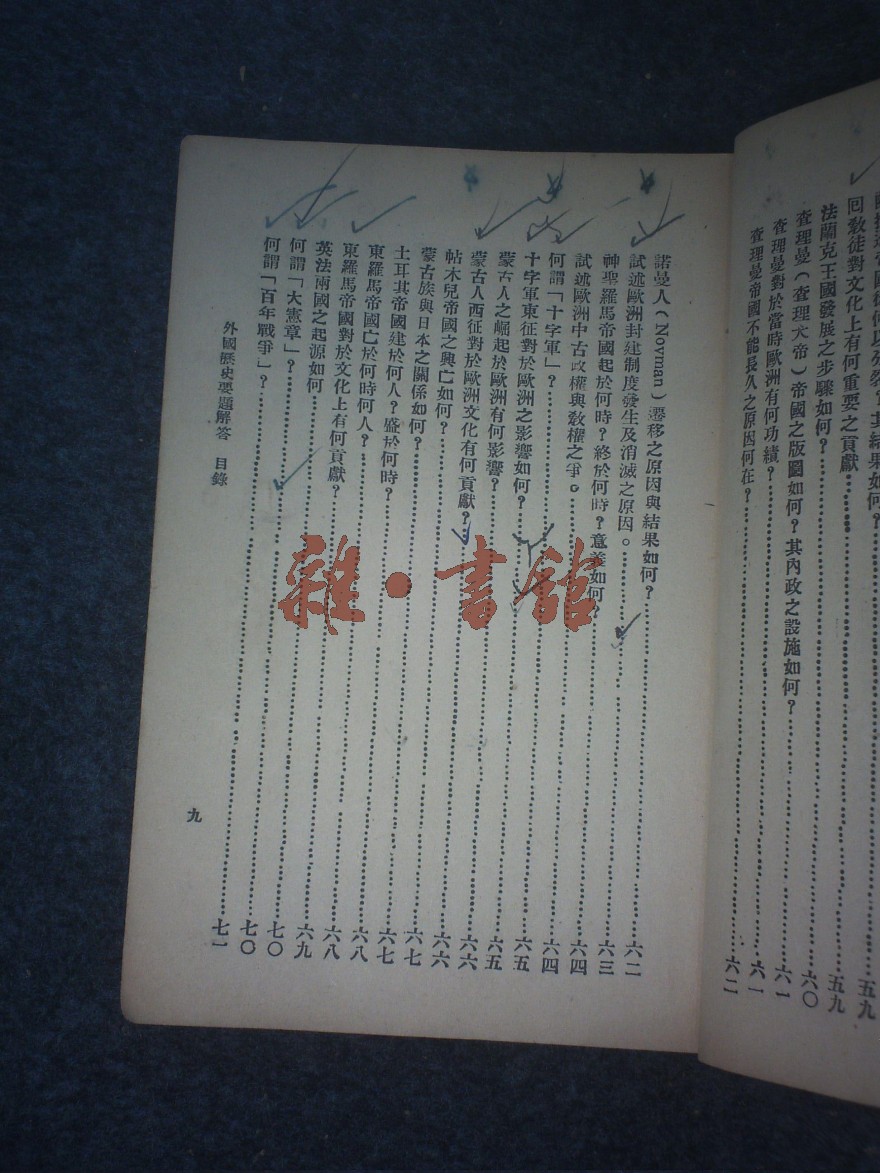 帝國後何以分裂？其結果如何？……五九
回教徒對文化上有何重要之貢獻……五九
法蘭克王國發展之步驟如何？……六〇
查理曼（查理大帝）帝國之版圖如何？其內政之設施如何？……六一
查理曼對於當時歐洲有何功績？……六一
查理曼帝國不能長久之原因何在？……六二
諾曼人（Novman）遷移之原因與結果如何？……六二
試述歐洲封建制度發生及消滅之原因。……六三
神聖羅馬帝國起於何時？終於何時？意義如何？……六四
試述歐洲中古政權與教權之爭。……六四
何謂「十字軍」？……六五
十字軍東征對於歐洲之影響如何？……六五
蒙古人之崛起於歐洲有何影響？……六六
蒙古人西征對於歐洲文化有何貢獻？……六六
帖木兒帝國之興亡如何？……六七
蒙古族與日本之關係如何？……六七
土耳其帝國建於何人？盛於何時？……六八
東羅馬帝國亡於何時何人？……六八
東羅馬帝國對於文化上有何貢獻？……六九
英法兩國之起源如何……七〇
何謂「大憲章」？……七〇
何謂「百年戰爭」？……七一
外國歷史要題解答　目錄
九
雜·書館